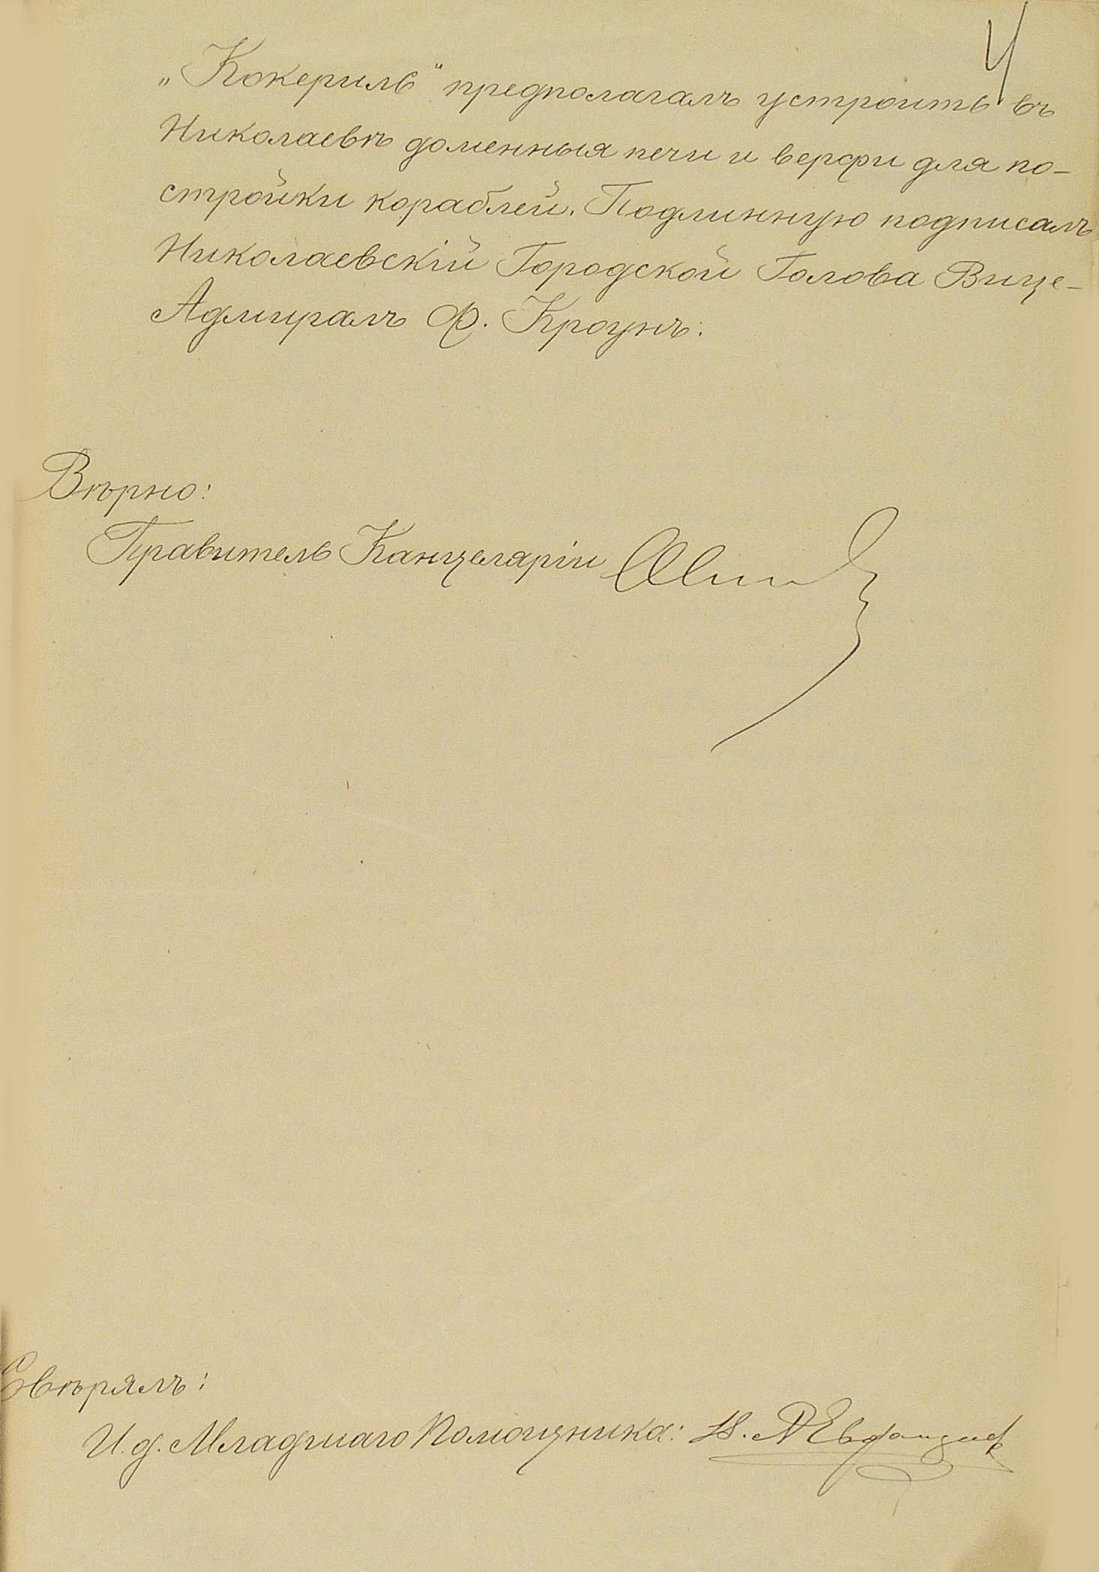 4
„Кокериль" предполагалъ устроить въ
Николаевѣ доменныя печи и верфи для по-
стройки кораблей. Подлинную подписалъ
Николаевскій Городской Голова Вице-
Адмиралъ Ф. Кроунъ.
Вѣрно:
Правитель Канцеляріи
Свѣрялъ:
И.д. Младшаго Помощника: